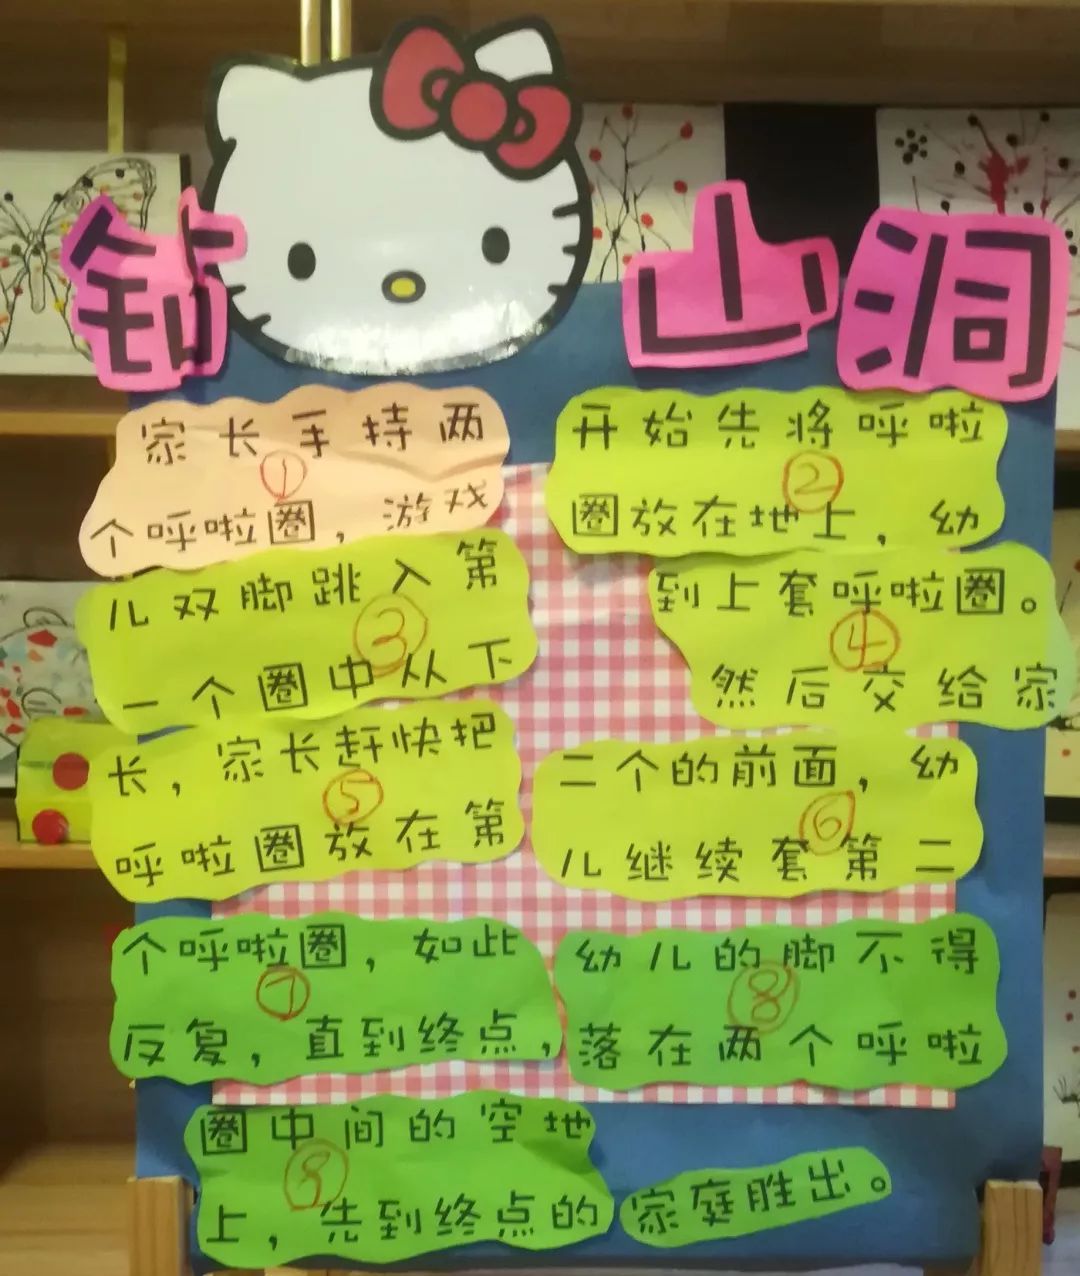 钻山洞
家长手持两
①
个呼啦圈，游戏
开始先将呼啦
②
圈放在地上，幼
儿双脚跳入第
③
一个圈中从下
到上套呼啦圈。
④
然后交给家
长，家长赶快把
⑤
呼啦圈放在第
二个的前面，幼
⑥
儿继续套第二
个呼啦圈，如此
⑦
反复，直到终点，
幼儿的脚不得
⑧
落在两个呼啦
圈中间的空地
⑨
上，先到终点的
家庭胜出。